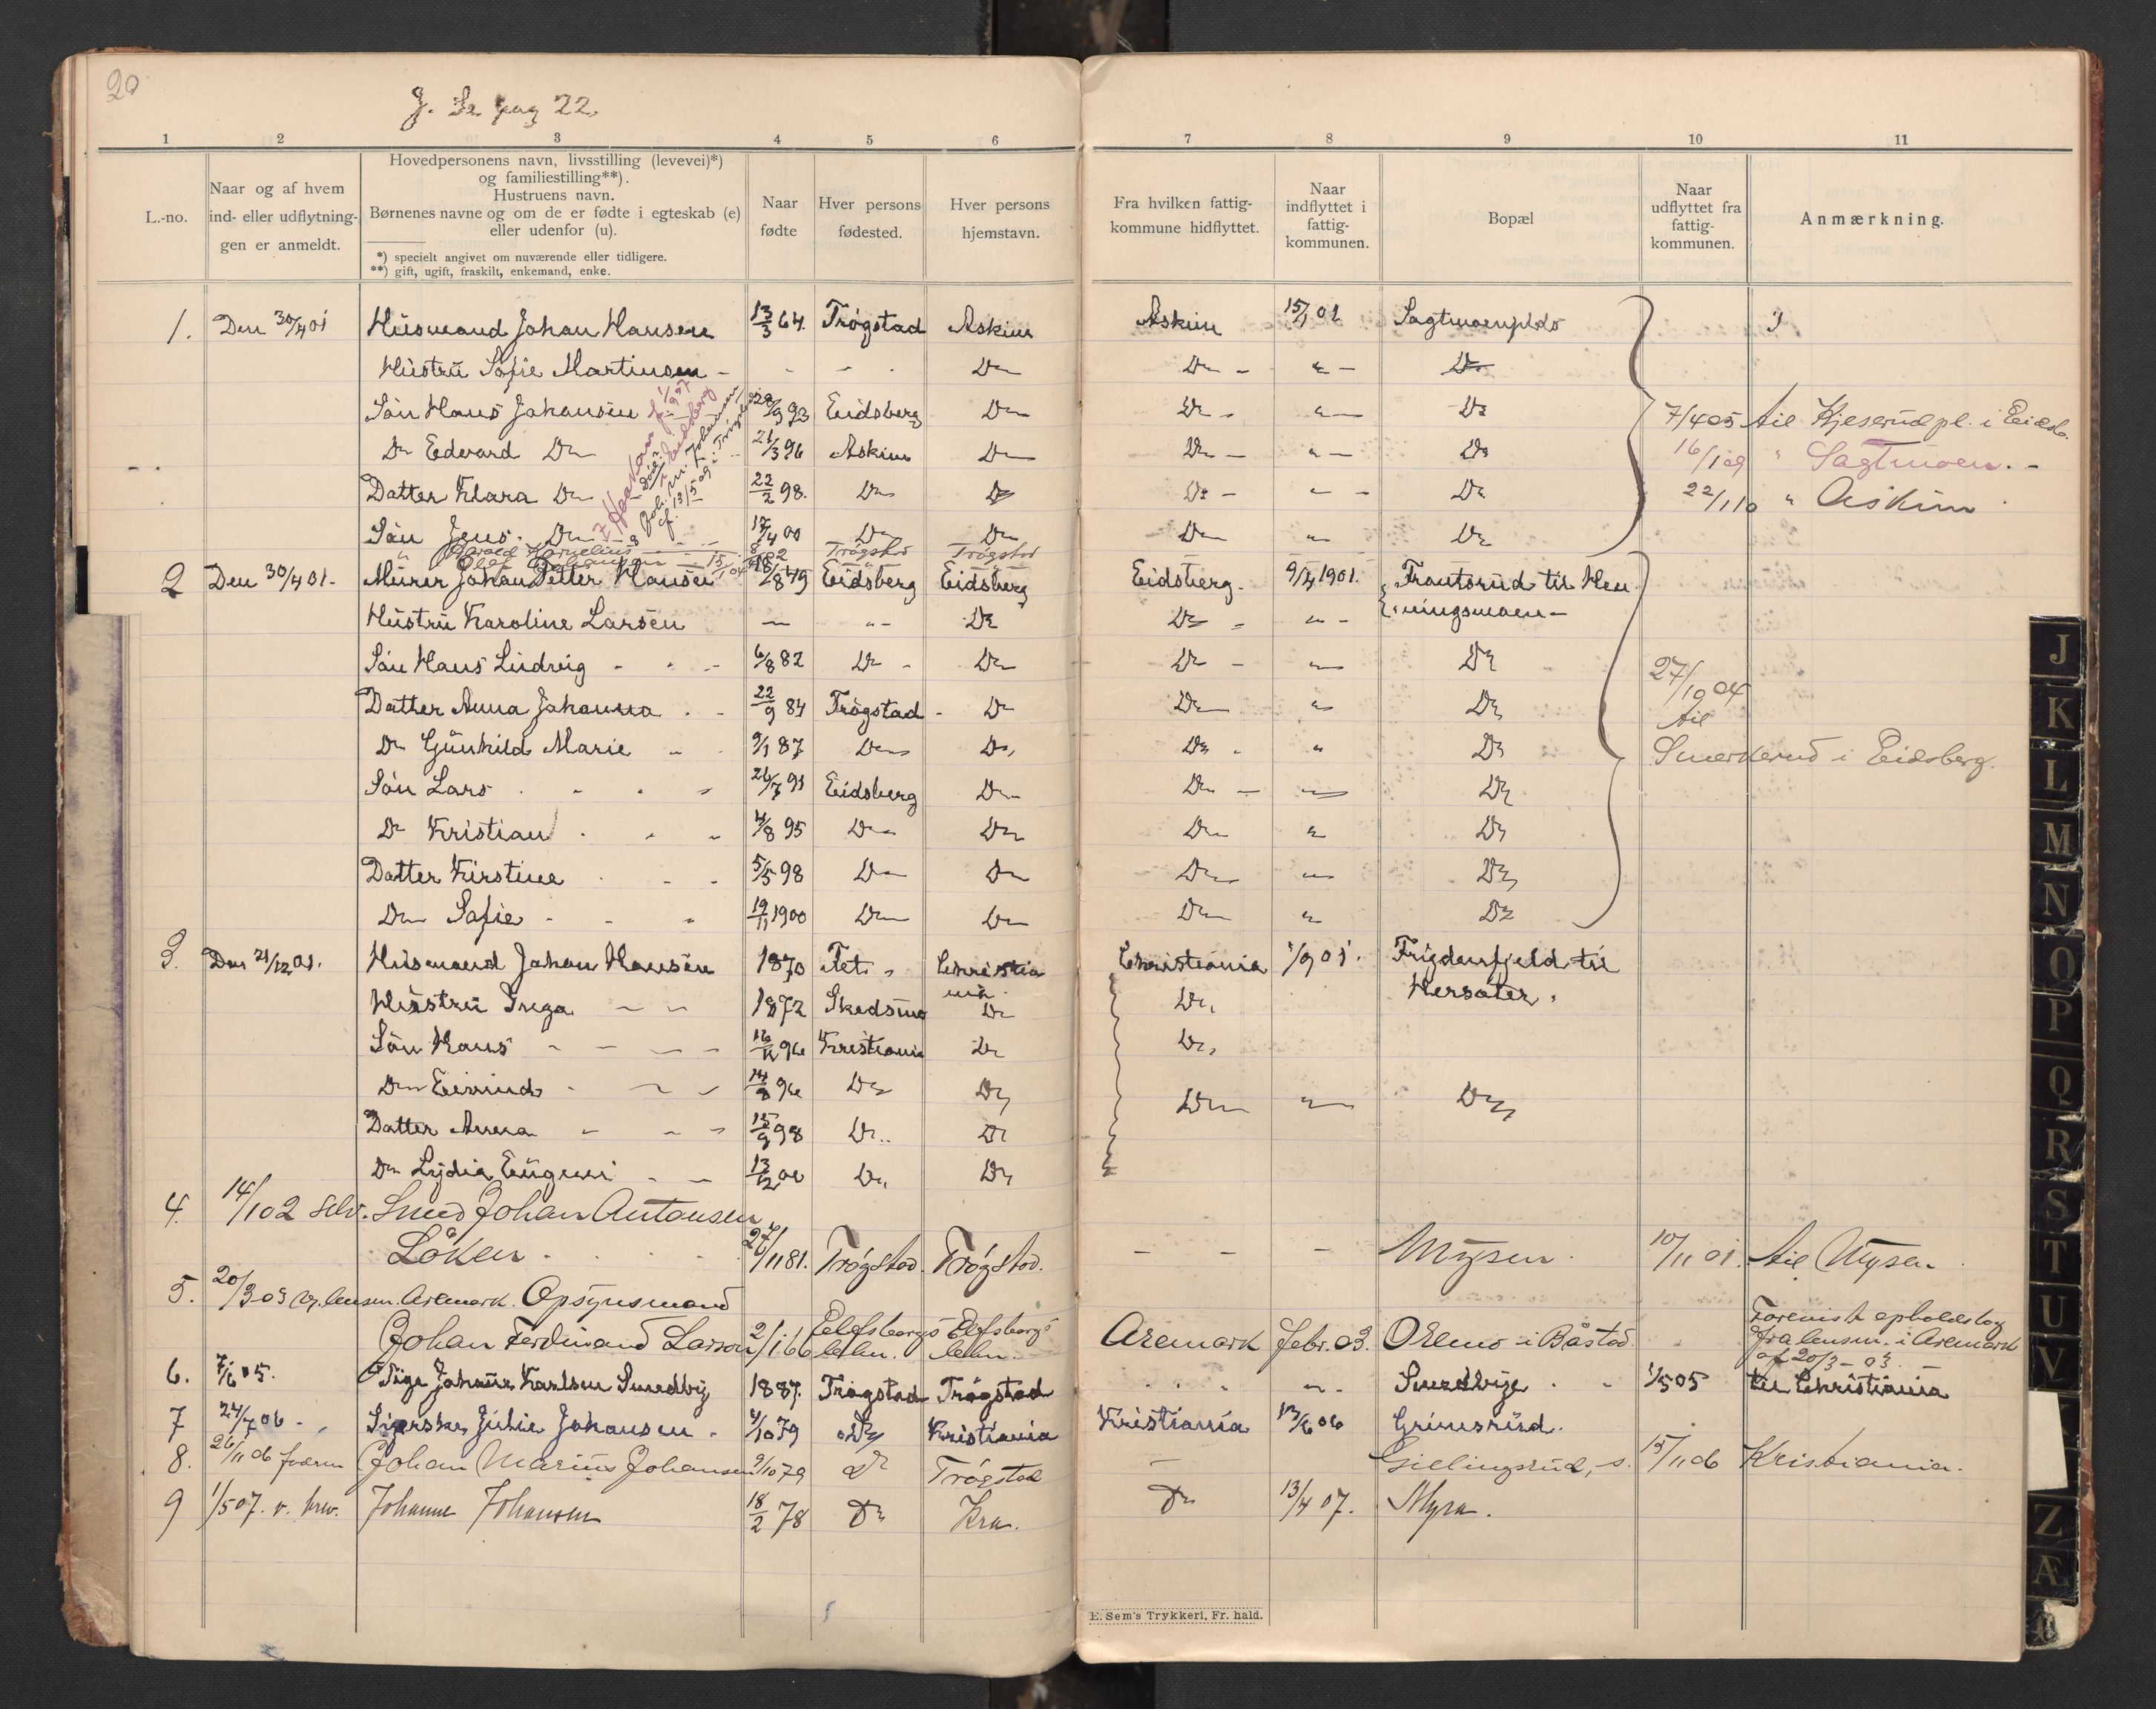 20
J. Se pag 22.
1 2 3 4 5 6 7 8 9 10 11
L.-no.
Naar og af hvem
ind- eller udflytning-
gen er anmeldt.
Hovedpersonens navn, livsstilling (levevei)*)
og familiestilling**).
Hustruens navn.
Børnenes navne og om de er fødte i egteskab (e)
eller udenfor (u).
*) specielt angivet om nuværende eller tidligere.
**) gift, ugift, fraskilt, enkemand, enke.
Naar
fødte
Hver persons
fødested.
Hver persons
hjemstavn.
Fra hvilken fattig-
kommune hidflyttet.
Naar
indflyttet i
fattig-
kommunen.
Bopæl
Naar
udflyttet fra
fattig-
kommunen.
Anmærkning.
1. Den 30/4 01 Husmand Johan Hansen 13/3 64. Trøgstad Askim Askim 15/4 01 Sagtmoenplds
Hustru Sofie Martinsen - - - Do Do - " - Do
Søn Hans Johansen 28/9 93 Eidsberg Do Do - " - Do 7/4 05 til Kjeserudpl. i Eidsb.
Do Edvard Do 21/3 96 Askim Do Do - " - Do 16/1 09 " Sagtmoen. -
Datter Klara Do 22/2 98. Do Do Do - " - Do 22/1 10 " Askim
Søn Jens Do 17/4 00 Do Do Do - " - Do
" Harald Kornelius 02 Trøgstad Trøgstad
Olef Johansen
2 Den 30/4 01. Murer Johan Petter Hansen 18/8 49 Eidsberg Eidsberg Eidsberg. 9/4 1901. Frautsrud til Hen-
ningsmoen -
Hustru Karoline Larsen - " - Do Do - " -
Søn Hans Ludvig - - - 6/8 82 Do - Do Do - " - Do 27/10 04
Datter Anna Johanna - - 22/9 84 Trøgstad - Do Do " Do til
Do Gunhild Marie " - 9/1 87 Do Do Do " Do Smerkerud i Eidsberg.
Søn Lars - - - 26/7 91 Eidsberg Do Do - " Do
Do Kristian - - - 4/8 95 Do Do Do " Do
Datter Kirstine - - - 5/5 98 Do Do Do " Do
Do Sofie - - " 19/11 1900 Do Do Do " Do
3. Den 21/12 01. Husmand Johan Hansen 1870 Fet " Christia
nia Christiania 1/9 01. Frigdenfjeld til
Hersæter.
Hustru Inga - - 1872 Skedsmo Do Do
Søn Hans - - - - 96 Kristiania Do Do
Do Eivind - - - 96 Do Do Do " Do
Datter Anna - - - 15/9 98 Do Do
Do Lydia Eugeni - - 13/12 00 Do Do
4. 14/1 02 selv. Smed Johan Antonsen
Løken - - - 27/11 81. Trøgstad. Trøgstad. - - - Mysen. 10/11 01. til Mysen
5. 20/3 03 Aremark. Opsynsmand
Johan Ferdinand Larson 2/1 66 Elfsborgs
lehn. Elfsborgs
lehn. Aremark febr. 03. Olemo i Båstad. Forevist opholdsbog
fra lensm. i Aremark
af 20/3 - 03. -
6. 7/6 05. Pige Johanne Karlsen Smedby 1887. Trøgstad Trøgstad - - - " - Smedbye - - 1/5 05 til Christiania
7 24/7 06 - " Julie Johansen - 4/10 79 Do Kristiania Kristiania 13/6 06 Grimsrud.
8. 26/11 06 Johan Marius Johansen 9/10 79 Do Trøgstad - Gillingsrud, s. 15/11 06 Kristiania.
9 1/5 07. v. brev. Johanne Johansen 18/2 78 Do Kra. Do 13/4 07. Myra.
E. Sem's Trykkeri, Fr. hald.
J
K
L
M
N
O
P
Q
R
S
T
U
V
Z
Æ
Ø